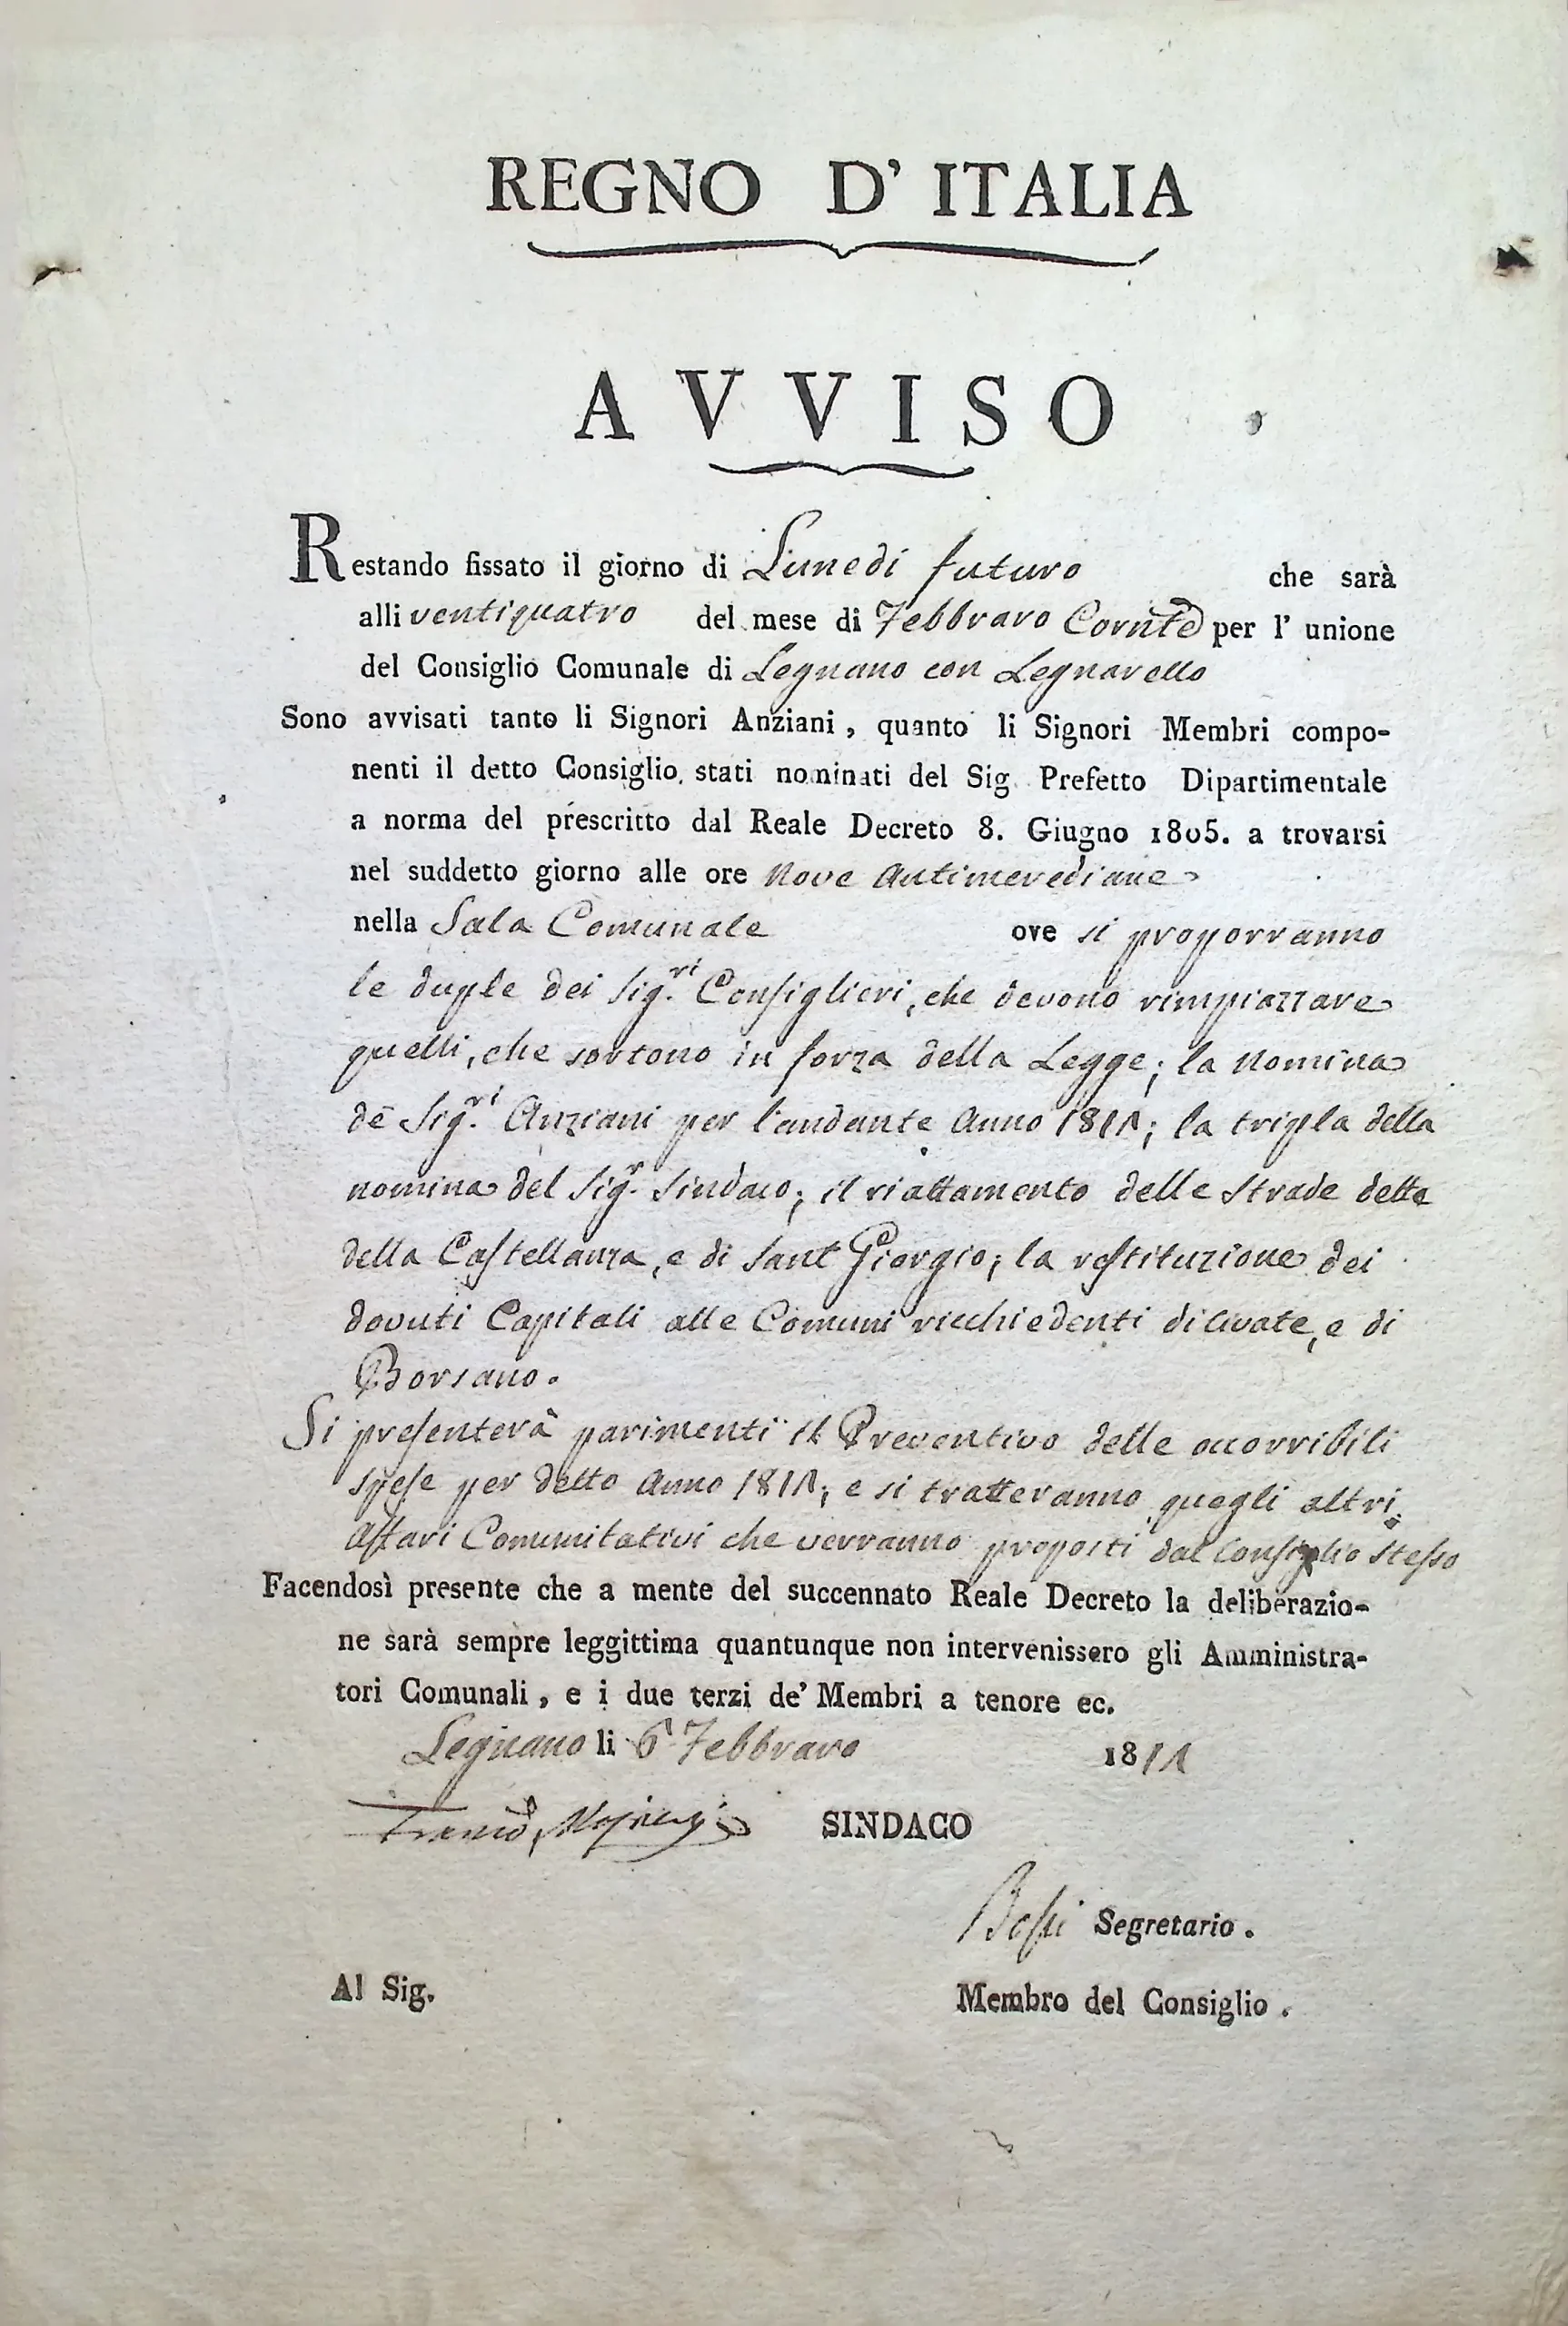 REGNO D' ITALIA
AVVISO
Restando fissato il giorno di Lunedi futuro che sarà
alli ventiquatro del mese di Febbraro Corn.te per l' unione
del Consiglio Comunale di Legnano con Legnarello
Sono avvisati tanto li Signori Anziani, quanto li Signori Membri compo-
nenti il detto Consiglio stati nominati del Sig. Prefetto Dipartimentale
a norma del prescritto dal Reale Decreto 8. Giugno 1805. a trovarsi
nel suddetto giorno alle ore Nove Antimerediane
nella Sala Comunale ove si proporranno
le duple dei Sig.ri Consiglieri, che devono rimpiazzare
quelli, che sortono in forza della Legge; la nomina
de Sig.ri Anziani per l'andante Anno 1811; la tripla della
nomina del Sig.r Sindaco; il riattamento delle Strade dette
della Castellanza, e di Sant Giorgio; la restituzione dei
dovuti Capitali alle Comuni ricchiedenti di Civate, e di
Borsano.
Si presenterà parimenti il Preventivo delle occorribili
spese per detto Anno 1811; e si tratteranno quegli altri
Affari Comunitativi che verranno proposti dal Consiglio stesso
Facendosì presente che a mente del succennato Reale Decreto la deliberazio-
ne sarà sempre leggittima quantunque non intervenissero gli Amministra-
tori Comunali, e i due terzi de' Membri a tenore ec.
Legnano li 6 Febbraro 1811
SINDACO
Bossi Segretario.
Al Sig. Membro del Consiglio.